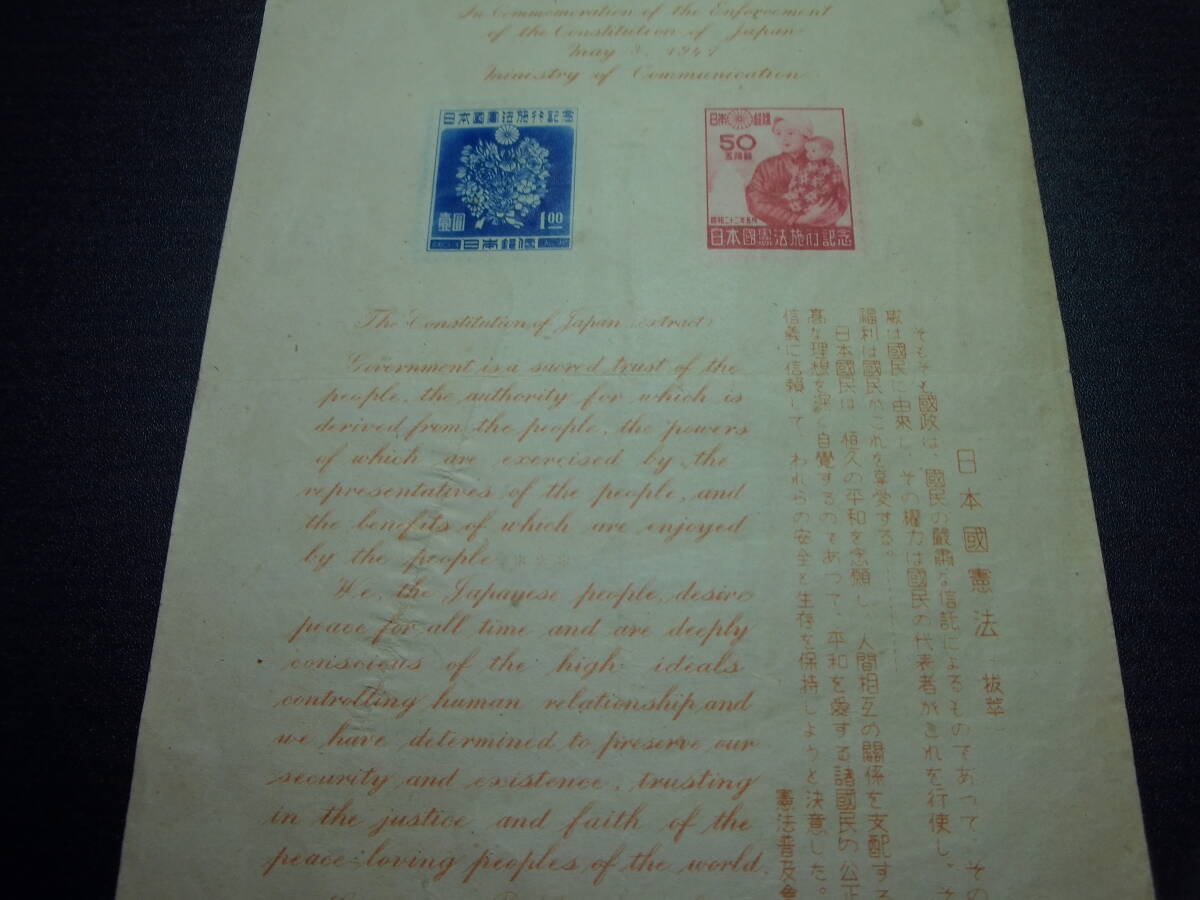 In Commemoration of the Enforcement
of the Constitution of Japan
May 3, 1947
Ministry of Communication
日本國憲法施行記念
壹圓
1.00
日本郵便
日本郵便
50
五拾錢
昭和二十二年五月
日本國憲法施行記念
The Constitution of Japan (extract)
Government is a sacred trust of the
people, the authority for which is
derived from the people, the powers
of which are exercised by the
representatives of the people, and
the benefits of which are enjoyed
by the people
We, the Japanese people, desire
peace for all time and are deeply
conscious of the high ideals
controlling human relationship, and
we have determined to preserve our
security and existence, trusting
in the justice and faith of the
peace-loving peoples of the world.
日本國憲法 抜萃
そもそも國政は、國民の嚴肅な信託によるものであって、その
威は國民に由來し、その權力は國民の代表者がこれを行使し、そ
福利は國民がこれを享受する。………
日本國民は、恒久の平和を念願し、人間相互の關係を支配する
高な理想を深く自覺するのであって、平和を愛する諸國民の公正
信義に信賴して、われらの安全と生存を保持しようと決意した。
憲法普及會